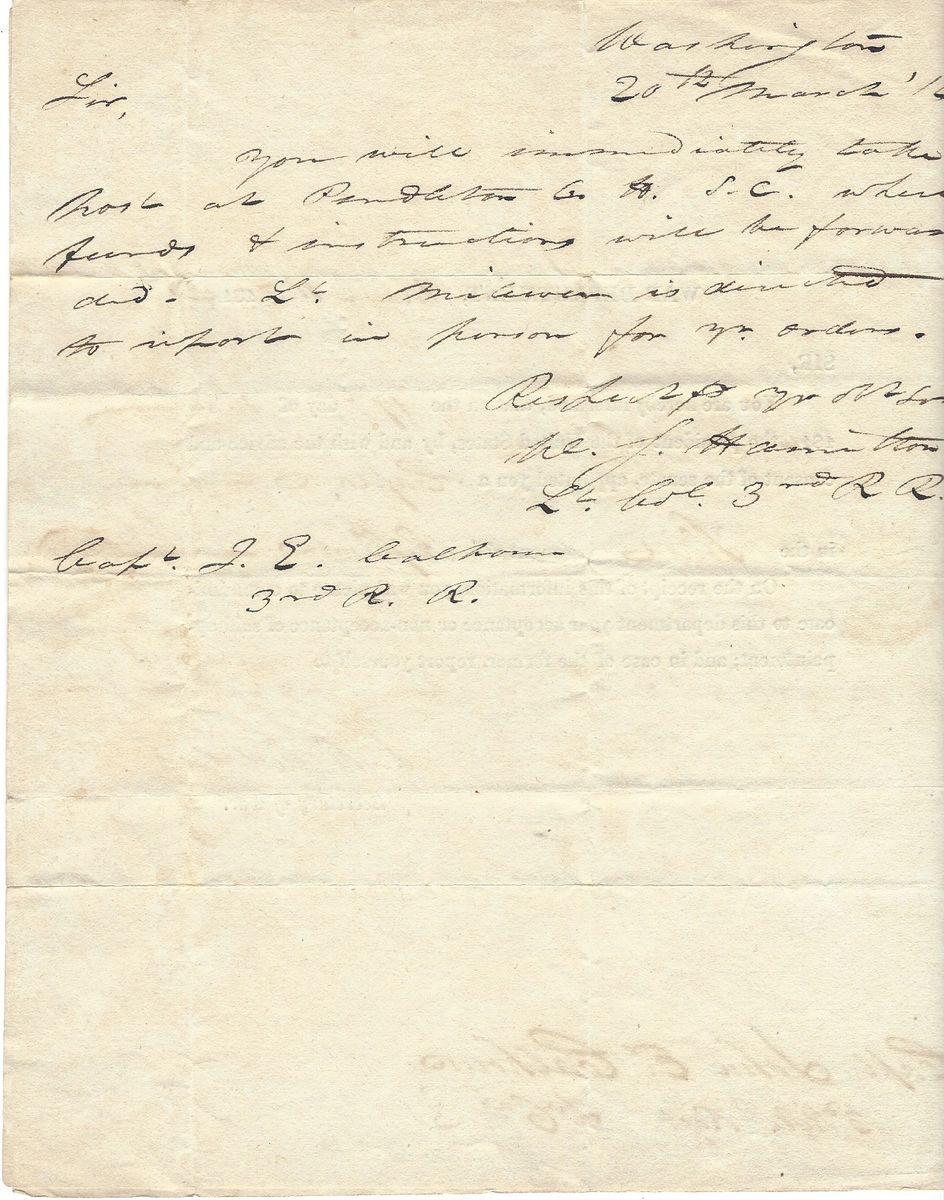 Washington
20th March '1
Sir,
You will immediately take
post at Pendleton C. H. S.C. where
funds & instructions will be forwar
ded. Lt. is directed
to report in person for yr. orders.
Respectf. yr Obt Sr
J. Hamilton
Lt. Col. 3rd R R.
Capt. J. E. Calhoun
3rd R. R.